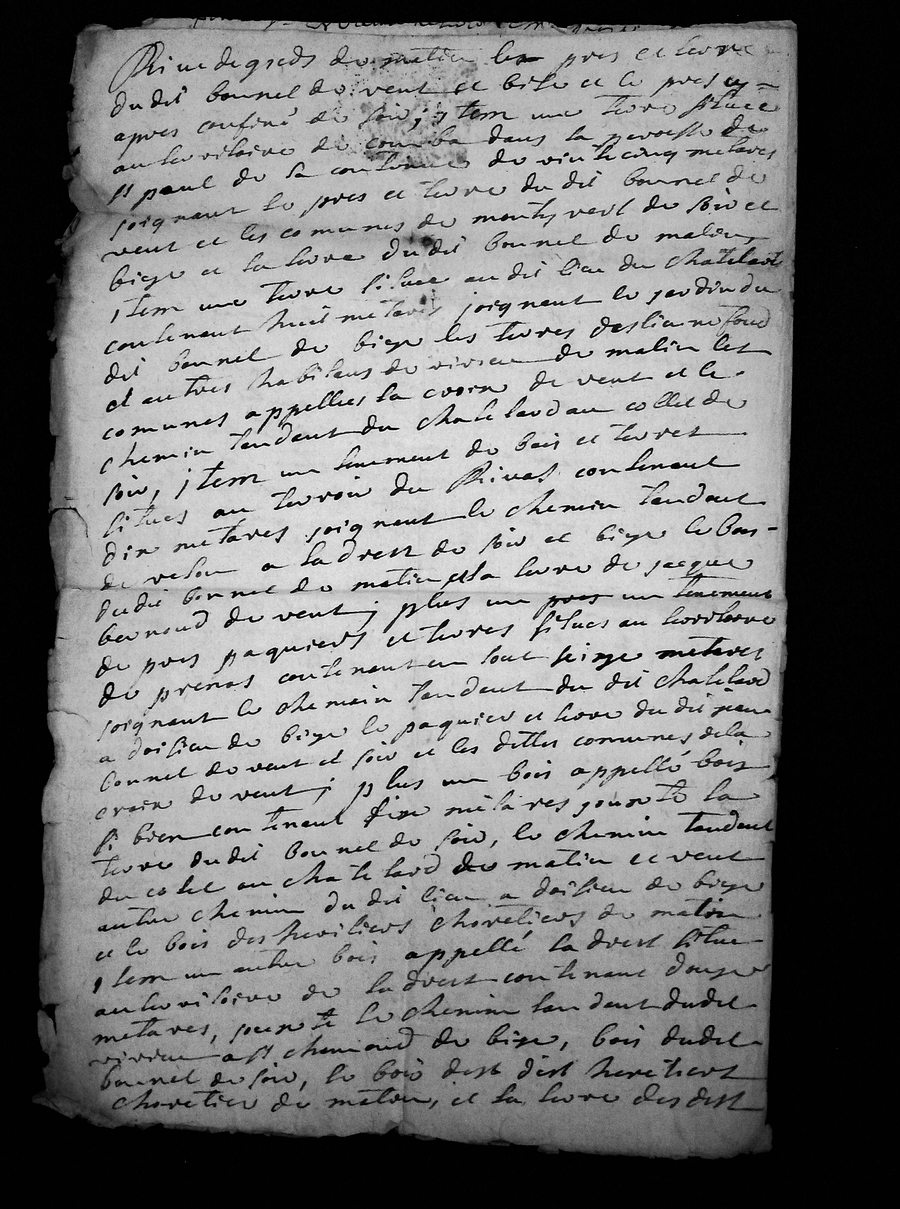 Rive de gieds de matin les pres et terre
dudit bonnel de vent et bise et le pres cy
apres confiné de soir; jtem une terre située
au territoire de comba dans la parroisse de
st paul de la contenue de vintcinq metares
joignant le pres et terre du dit bonnel de
vent et les comunes de montyvert de soir et
bize et la terre dudit bonnel de matin,
jtem une terre située au dit lieu du chatelard
contenant huit metares joignant le jardin du
dit bonnel de bize les terres
et autres habitans de rivieu de matin les
comunes appellées la croix de vent et le
chemin tendant du chatelard au collet de
soir, jtem un tenement de bois et terres
situés au terroir du Rivas contenant
dix metares joignant le chemin tendant
de a la drest de soir et bize le bois
dudit bonnel de matin et la terre de jacque
bernoud de vent; plus un pres un tenement
de pres paquiers et terres situés au territoire
de prenas contenant en tout seize metares
joignant le chemin tendant du dit chatelard
a doisieu de bize le paquier et terre du dit jean
bonnel de vent et soir et les dittes comunes de la
croix de vent; plus un bois appellé bois
si bien contenant dix métares jouxte la
terre dudit bonnel de soir, le chemin tendant
du colet au chatelard de matin et vent
autre chemin du dit lieu a doisieu de bize
et le bois des heritiers choretiers de matin
jtem un autre bois appellé la drest situé
au territoire de la drest contenant douze
metares, jouxte le chemin tendant dudit
rivieu a st chemond de bize, bois dudit
bonnel de soir, le bois desd dest heretiers
choretier de matin, et la terre des dest